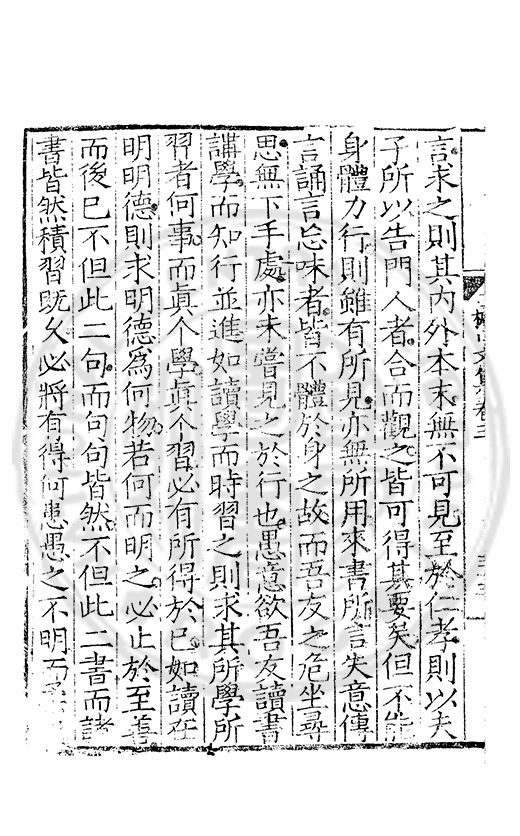 言求之則其內外本末無不可見至於仁孝則以夫
子所以告門人者合而觀之皆可得其要矣但不能
身體力行則雖有所見亦無所用來書所言失意傳
言誦言忘味者皆不體於身之故而吾友之危坐尋
思無下手處亦未嘗見之於行也愚意欲吾友讀書
講學而知行並進如讀學而時習之則求其所學所
習者何事而眞个學眞个習必有所得於已如讀在
明明德則求明德爲何物若何而明之必止於至善
而後已不但此二句而句句皆然不但此二書而諸
書皆然積習旣久必將有得何患愚之不明而柔
文集卷三